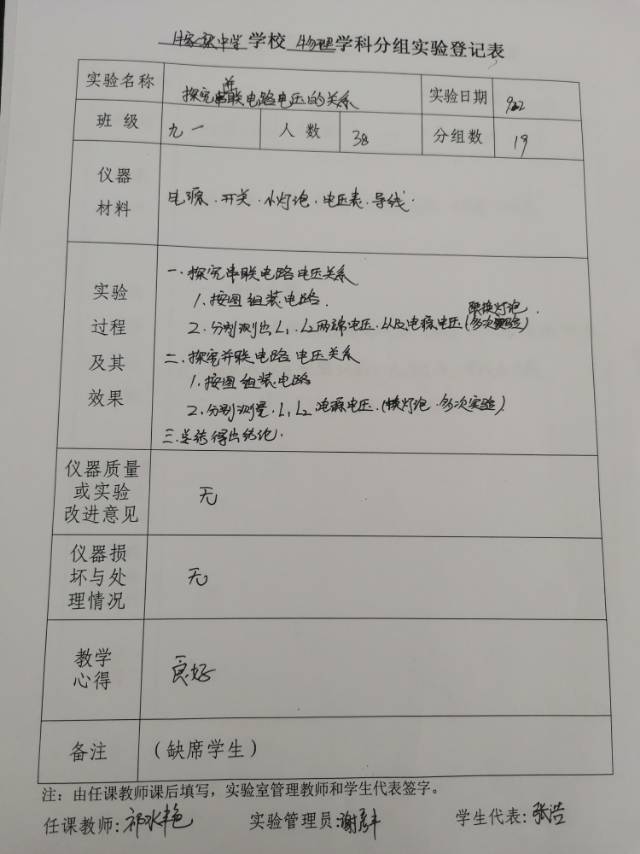 中学学校 物理学科分组实验登记表
实验名称 探究串并联电路电压的关系 实验日期
班 级 九一 人 数 38 分组数 19
仪器
材料
电源.开关.小灯泡.电压表.导线.
实验
过程
及其
效果
一.探究串联电路电压关系
1.按图组装电路.
2.分别测出L₁.L₂两端电压.以及电源电压(换灯泡.多次实验)
二.探究并联电路电压关系
1.按图组装电路
2.分别测量.L₁L₂电源电压.(换灯泡.多次实验)
三.总结得出结论.
仪器质量
或实验
改进意见
无
仪器损
坏与处
理情况
无
教学
心得
良好
备注 (缺席学生)
注：由任课教师课后填写，实验室管理教师和学生代表签字。
任课教师: 实验管理员: 学生代表:张浩